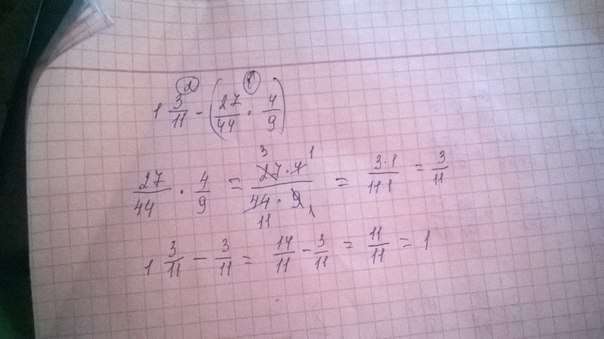 1 3/11 - (27/44 · 4/9)
27/44 · 4/9 = 27·4/44·9 = 3·1/11·1 = 3/11
1 3/11 - 3/11 = 14/11 - 3/11 = 11/11 = 1